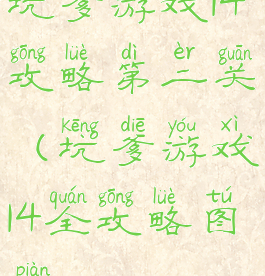 坑爹游戏14
gōng lüè dì èr guān
攻略第二关
kēng diē yóu xì
(坑爹游戏
quán gōng lüè tú
14全攻略图
piàn